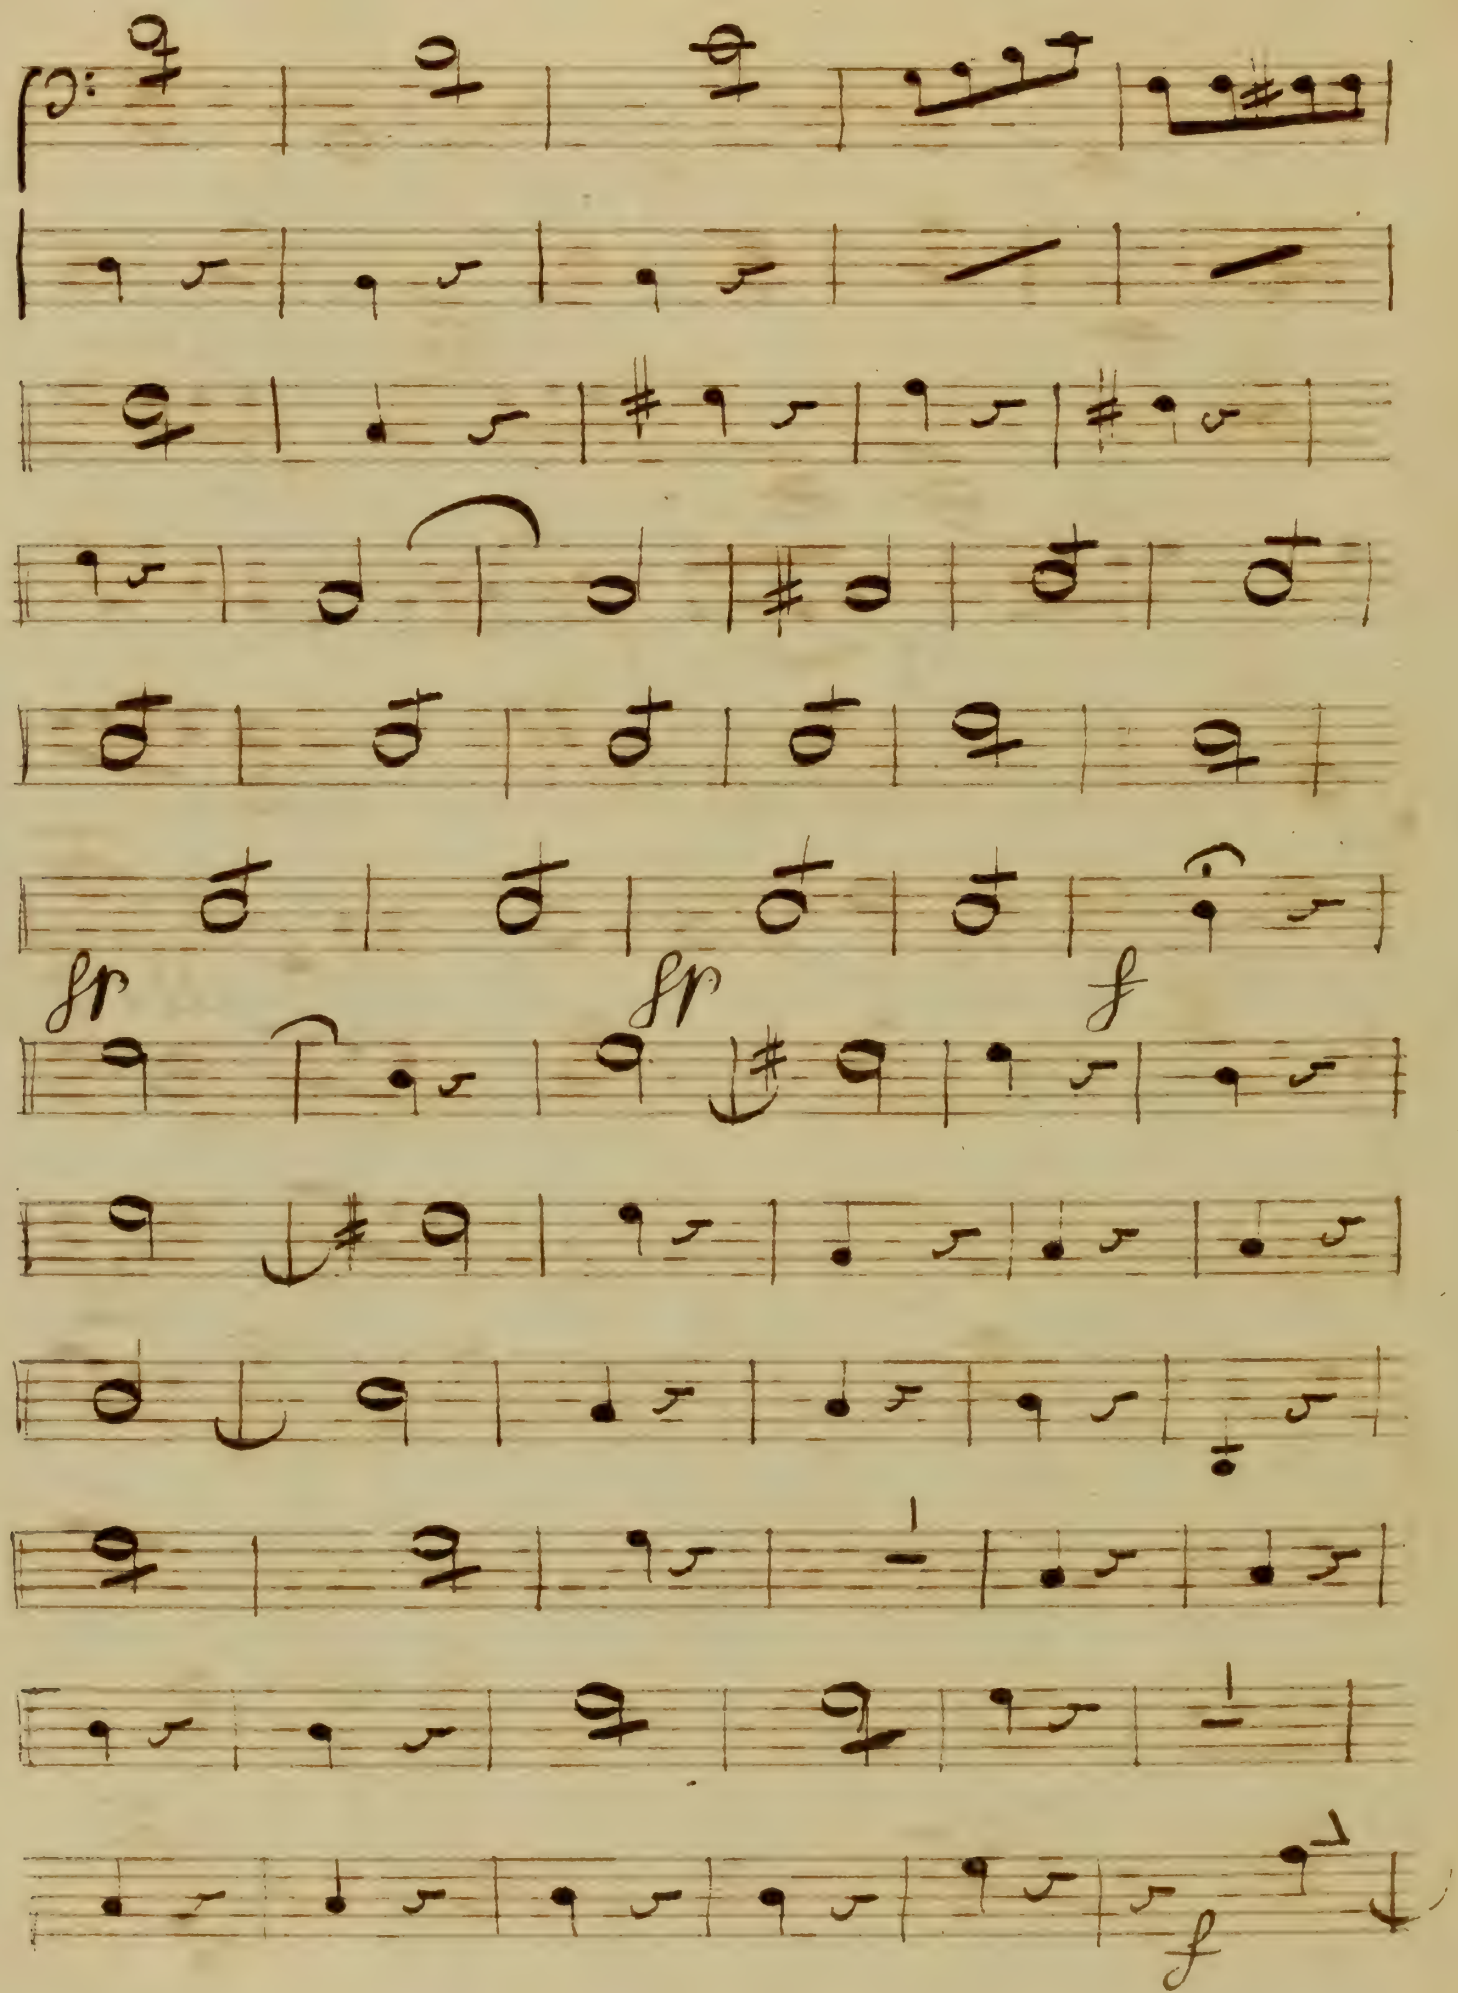 fp fp f
f